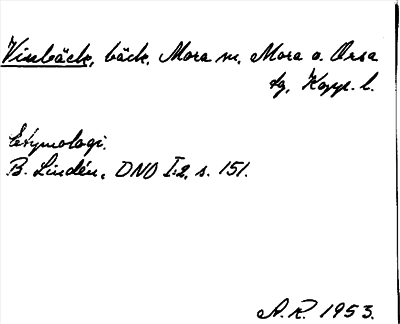 Vinbäck, bäck. Mora m, Mora o. Orsa
tg, Kopp. l.
Etymologi.
B. Lindén, DNO I:2, s. 151.
A.R. 1953.